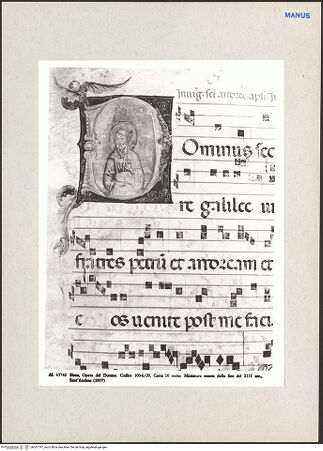 MANUS
In uig. sci andree apli. In
Ominus sec
re galilee ui
fratres petru et andream et
c os uenite post me faci
Al. 53742 Siena, Opera del Duomo. Codice 100-6/29, Carta 16 recto. Miniatura senese della fine del XIII sec., Sant'Andrea (2977)